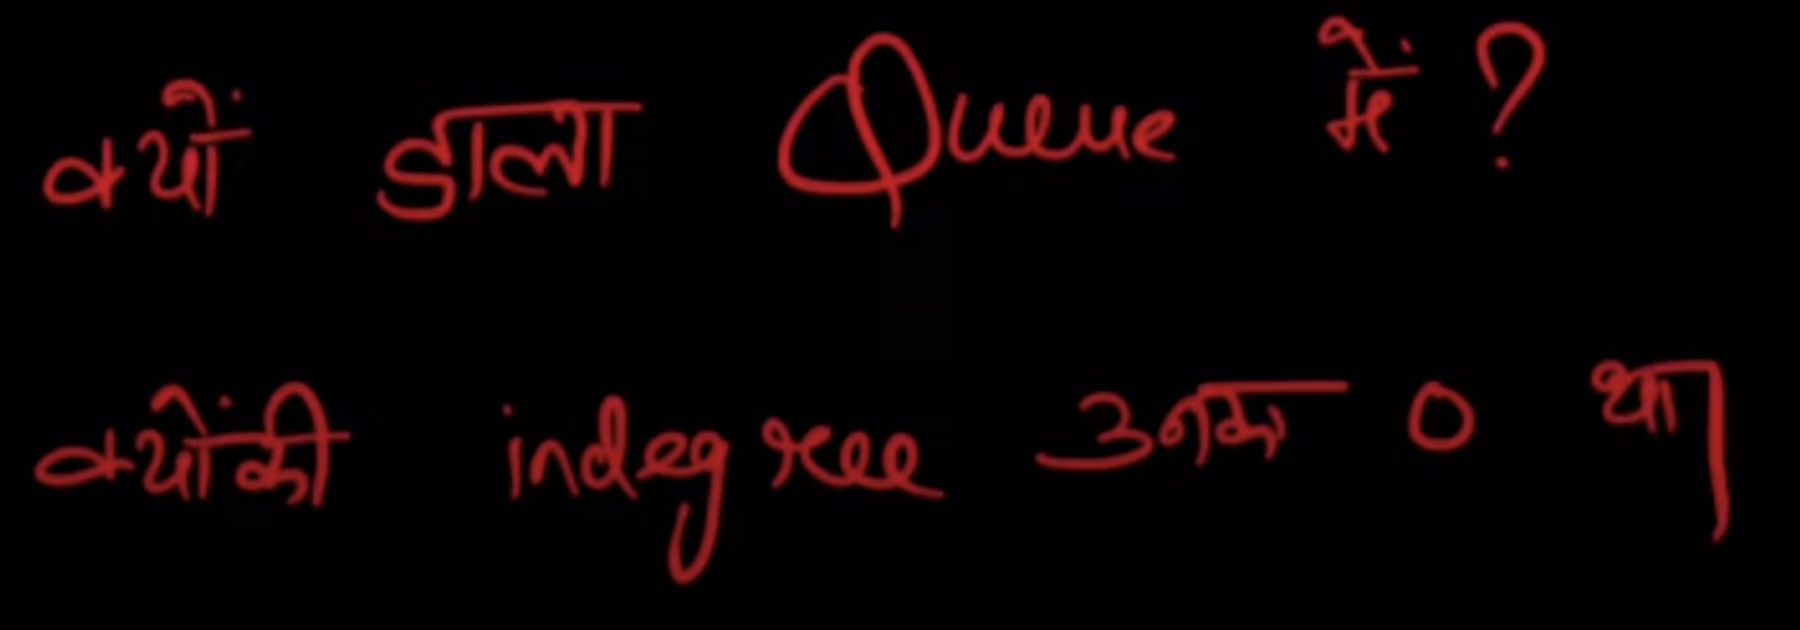 क्यों डाला Queue में?
क्योंकी indegree उनका 0 था